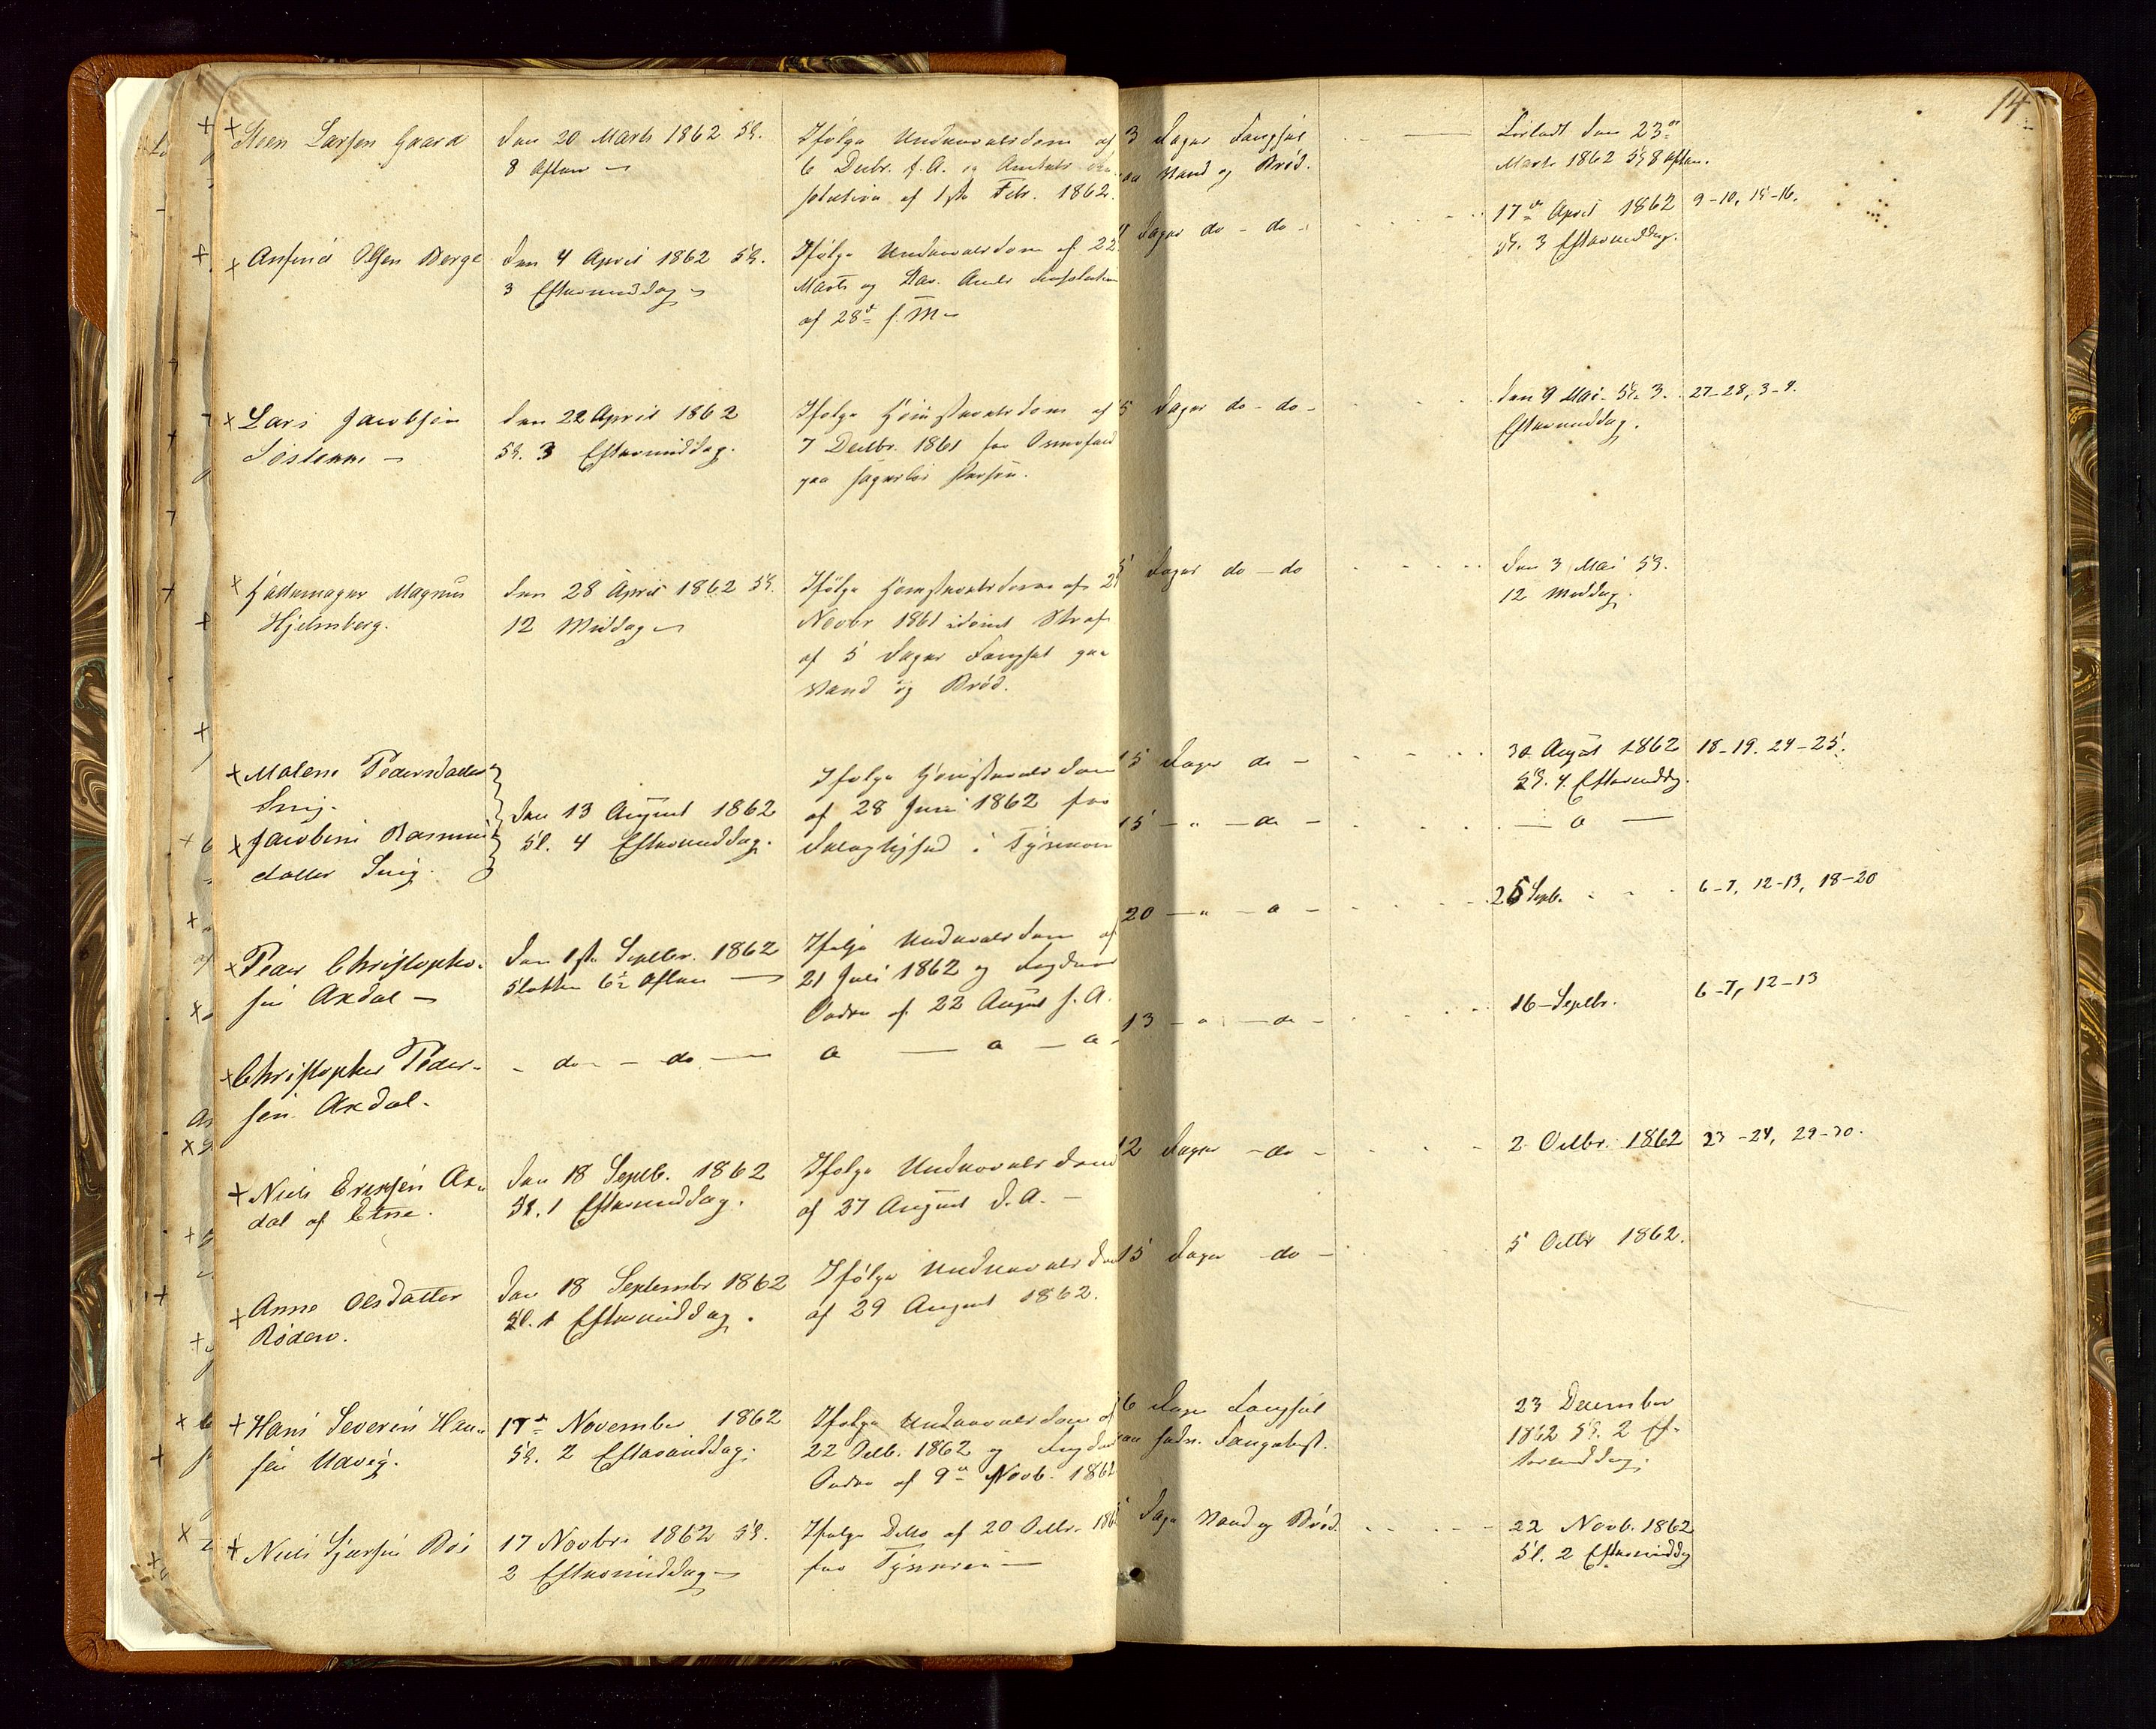 14
+ Steen Larsen Gaard
den 20 Marts 1862 Kl.
8 Aften
Ifølge Underretsdom af
6 Decbr. f.A. og Amtets Re-
solution af 1ste Febr. 1862.
3 Dages Fængsel
paa Vand og Brød.
Løsladt den 23de
Marts 1862 Kl 8 Aften.
+ Anfind Olsen Berge
den 4 April 1862 Kl.
3 Eftermiddag
Ifølge Underretsdom af 22
Marts og Stav. Amts Resolution
af 28de s. M.
Dager do - do -
17de April 1862
Kl. 3 Eftermiddag.
9-10, 15-16.
+ Lars Jacobsen
den 22 April 1862
Kl. 3 Eftermiddag.
Ifølge Høiesteretsdom af
7 Decbr. 1861 for Overfald
paa sageløs Person.
5 Dager do - do -
den 9 Mai Kl. 3.
Eftermiddag.
27-28, 3-4.
+ Hattemager Magnus
Hjelmberg.
den 28 April 1862 Kl.
12 Middag
Ifølge Høiesteretsdom af 2
Novbr 1861 idømt Straf
af 5 Dages Fængsel paa
Vand og Brød.
5 Dager do - do
den 3 Mai Kl.
12 Middag.
+ Malene Pedersdatter
+ Jacobine Rasmus
datter
den 13 August 1862
Kl. 4 Eftermiddag.
Ifølge Høiesteretsdom
af 28 Juni 1862 for
Delagtighed i Tyveri
15 Dager do -
30 August 1862
Kl. 4 Eftermiddg.
18-19. 24-25.
15 - " - do -
+ Peder Christopher-
sen Axdal -
den 1ste Septbr. 1862
Klokken 6½ Aften
Ifølge Underretsdom af
21 Juli 1862 og Fogdens
Ordre af 22 August s. A.
20 - " -
25 Septb.
6-7, 12-13, 18-20
+ Christopher Peder-
sen Axdal.
- do - do -
13 - " - do -
16 - Septbr.
6-7, 12-13
+ Niels Eriksen Ax-
dal af Etne.
den 18 Septb. 1862
Kl. 1 Eftermiddag.
Ifølge Underretsdom
af 27 August d. A. -
12 Dager - do -
2 Octbr. 1862
23-24, 29-30.
+ Anne Olsdatter
den 18 Septembr 1862
Kl. 1 Eftermiddag.
Ifølge Underretsdom
af 29 August 1862.
15 Dager do -
5 Octbr 1862.
+ Hans Severin Han-
sen
17de November 1862
Kl. 2 Eftermiddag.
Ifølge Underretsdom af
22 Octb. 1862 og Fogdens
Ordre af 9de Novb. 1862
6 Dages Fængsel
paa sædv. Fangekost.
23 December
1862 Kl. 2 Ef-
termiddag.
+ Niels
17 Novbr. 1862 Kl.
2 Eftermiddag
Ifølge Ditto af 20 Octbr.
for Tyveri
Dage Vand og Brød.
22 Novb. 1862
Kl. 2 Eftermiddg